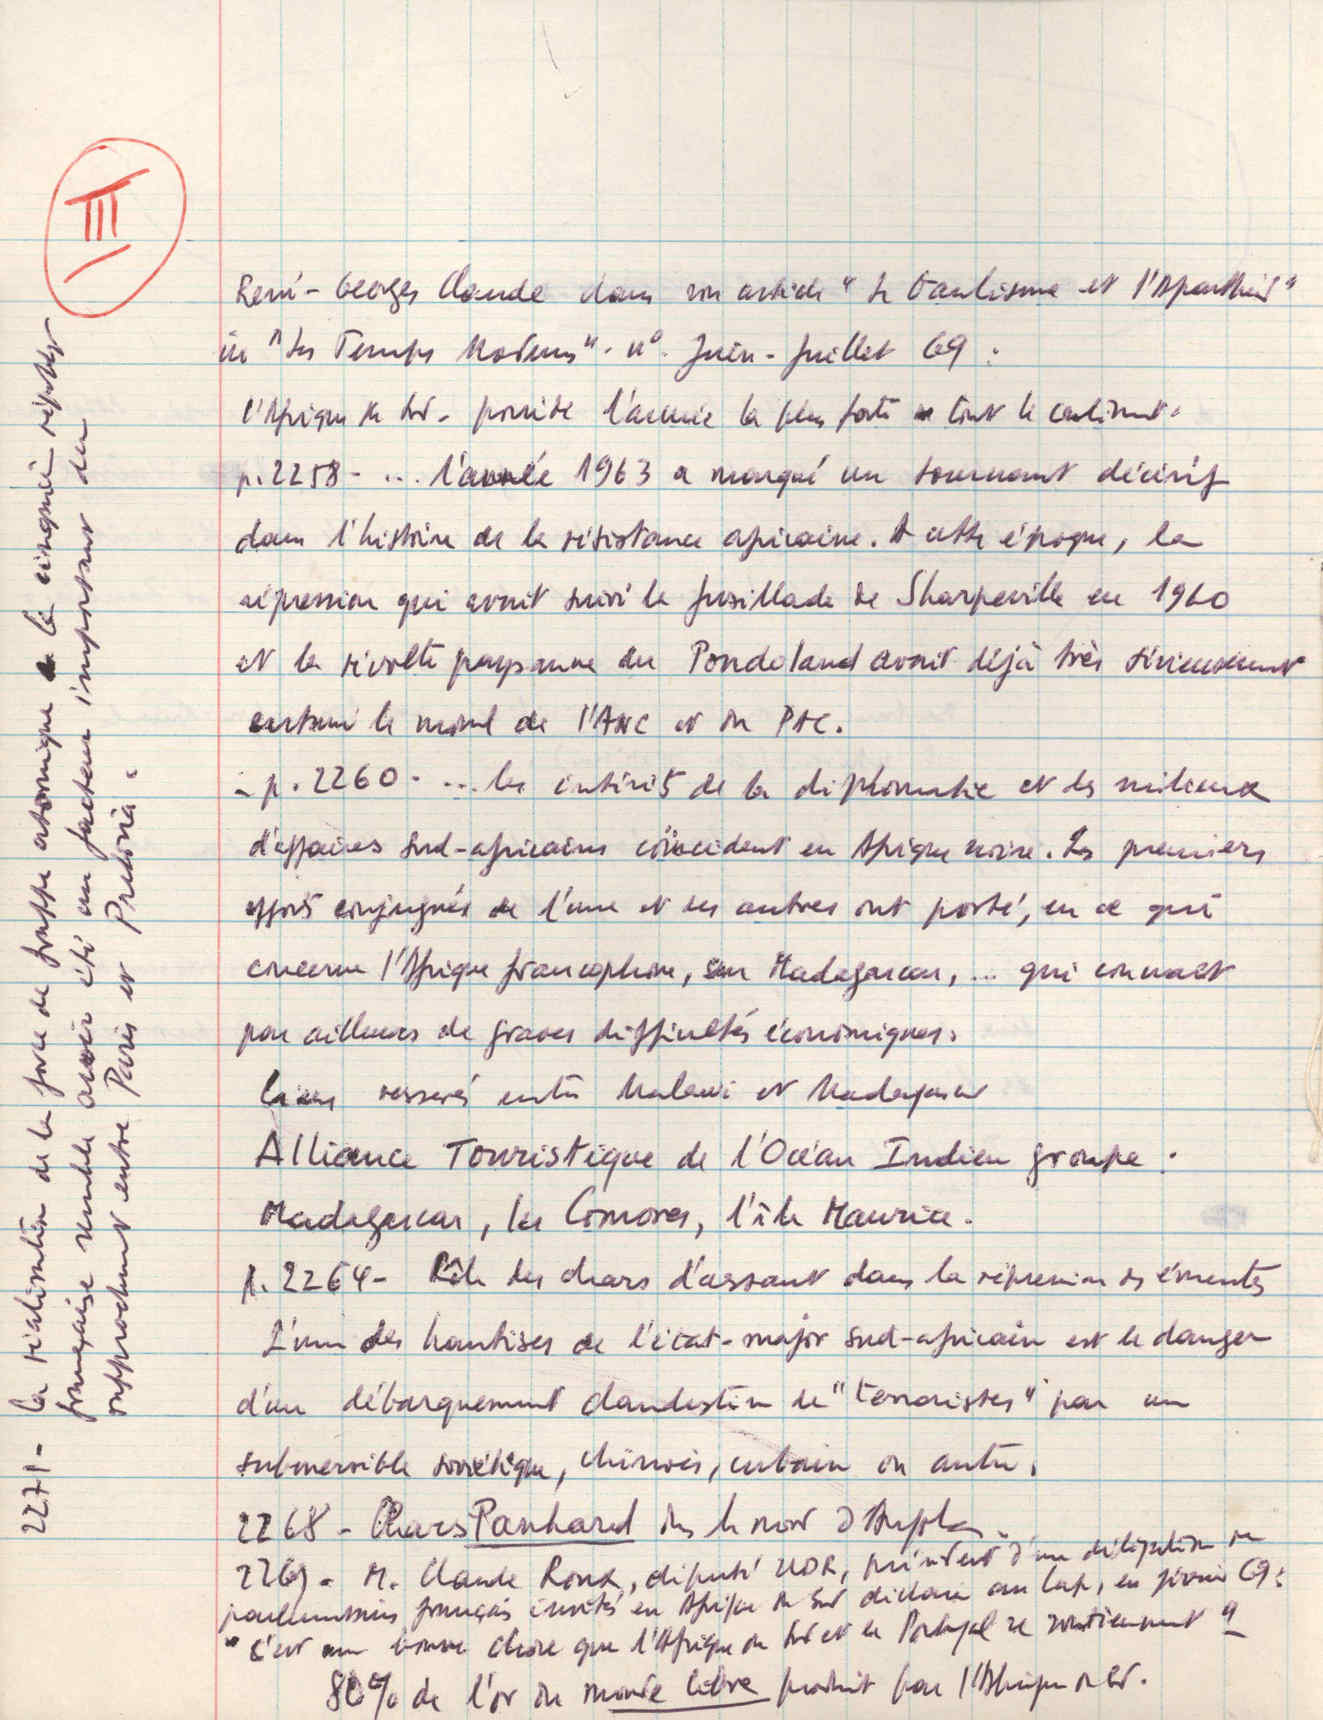 III
René-Georges Claude dans son article "Le Gaullisme et l'Apartheid"
in "Les Temps Modernes". n° Juin-Juillet 69 :
l'Afrique du Sud - possède l'armée la plus forte de tout le continent.
p. 2258 - ... l'année 1963 a marqué un tournant décisif
dans l'histoire de la résistance africaine. A cette époque, la
répression qui avait suivi la fusillade de Sharpeville en 1960
et la révolte paysanne du Pondoland avait déjà très sérieusement
entamé le moral de l'ANC et du PAC.
- p. 2260 - ... les intérêts de la diplomatie et des milieux
d'affaires sud-africains coïncident en Afrique noire. Les premiers
efforts conjugués de l'une et des autres ont porté, en ce qui
concerne l'Afrique francophone, sur Madagascar, ... qui connaît
par ailleurs de graves difficultés économiques.
liens resserrés entre Malawi et Madagascar
Alliance Touristique de l'Océan Indien groupe :
Madagascar, les Comores, l'île Maurice.
p. 2264 - Rôle des chars d'assaut dans la répression des émeutes
L'une des hantises de l'état-major sud-africain est le danger
d'un débarquement clandestin de "terroristes" par un
submersible soviétique, chinois, cubain ou autre.
2268 - Chars Panhard dans le nord d'Angola.
2269 - M. Claude Roux, député UDR, président d'une délégation de
parlementaires français invités en Afrique du Sud déclare au Cap, en février 69 :
"C'est une bonne chose que l'Afrique du Sud et le Portugal se soutiennent"
80% de l'or du monde libre produit par l'Afrique du Sud.
2271 - La réalisation de la force de frappe atomique de la cinquième république
française semble avoir été un facteur important du
rapprochement entre Paris et Prétoria.